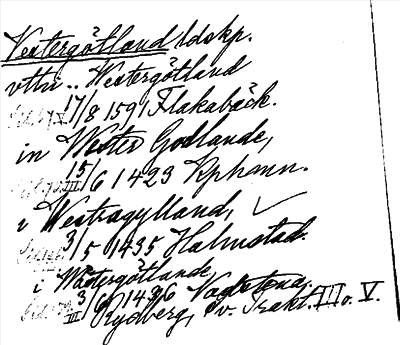 Vestergötland ldskp.
vttü .. Westergötland
17/8 1591 Flakabäck.
in Wester Godlande,
15/6 1423 Kphamn.
i Westragylland,
3/5 1435 Halmstad.
i Wästergötlande
3/6 1436 Vagstena.
Rydberg, Sv. Trakt. III o. V.